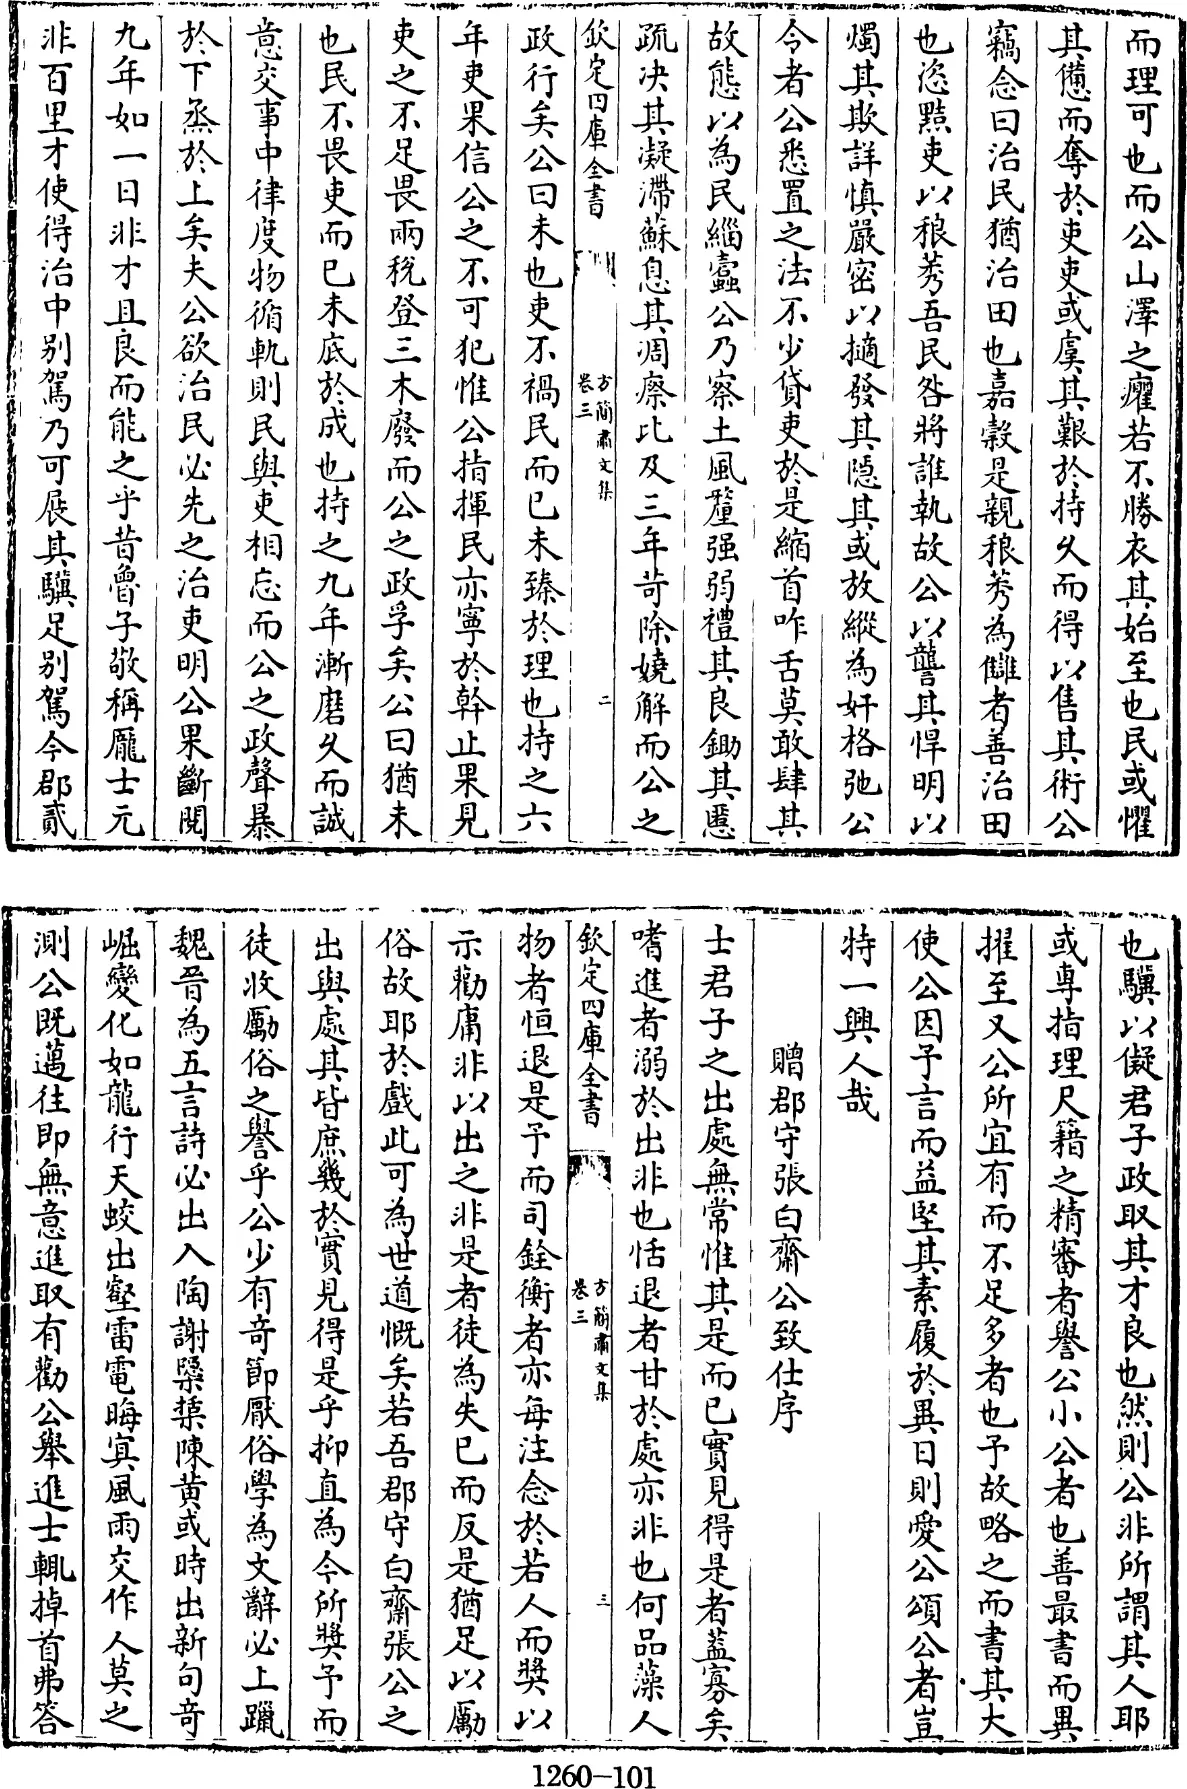 而理可也而公山澤之癯若不勝衣其始至也民或懼
其憊而奪於吏吏或虞其艱於持久而得以售其術公
竊念曰治民猶治田也嘉穀是親稂莠為讎者善治田
也恣黠吏以稂莠吾民咎將誰執故公以讋其悍明以
燭其欺詳慎嚴密以擿發其隱其或放縱為奸格弛公
令者公悉置之法不少貸吏於是縮首咋舌莫敢肆其
故態以為民緇蠹公乃察土風釐强弱禮其良鋤其慝
疏決其凝滯蘇息其凋瘵比及三年苛除嬈解而公之
欽定四庫全書
方簡肅文集
卷三
二
政行矣公曰未也吏不禍民而已未臻於理也持之六
年吏果信公之不可犯惟公指揮民亦寧於幹止果見
吏之不足畏兩稅登三木廢而公之政孚矣公曰猶未
也民不畏吏而已未底於成也持之九年漸磨久而誠
意交事中律度物循軌則民與吏相忘而公之政聲暴
於下烝於上矣夫公欲治民必先之治吏明公果斷閱
九年如一日非才且良而能之乎昔魯子敬稱龎士元
非百里才使得治中别駕乃可展其驥足别駕今郡貳
也驥以儗君子政取其才良也然則公非所謂其人耶
或專指理尺籍之精審者譽公小公者也善最書而異
擢至又公所宜有而不足多者也予故略之而書其大
使公因予言而益堅其素履於異日則愛公頌公者豈
特一興人哉
贈郡守張白齋公致仕序
士君子之出處無常惟其是而已實見得是者蓋寡矣
嗜進者溺於出非也恬退者甘於處亦非也何品藻人
欽定四庫全書
方簡肅文集
卷三
三
物者恒退是予而司銓衡者亦每注念於若人而奬以
示勸庸非以出之非是者徒為失已而反是猶足以勵
俗故耶於戲此可為世道慨矣若吾郡守白齋張公之
出與處其皆庶幾於實見得是乎抑直為今所奬予而
徒收勵俗之譽乎公少有奇節厭俗學為文辭必上躐
魏晉為五言詩必出入陶謝槩椠陳黄或時出新句奇
崛變化如龍行天蛟出壑雷電晦㝠風雨交作人莫之
測公既邁往即無意進取有勸公舉進士輒掉首弗答
1260-101